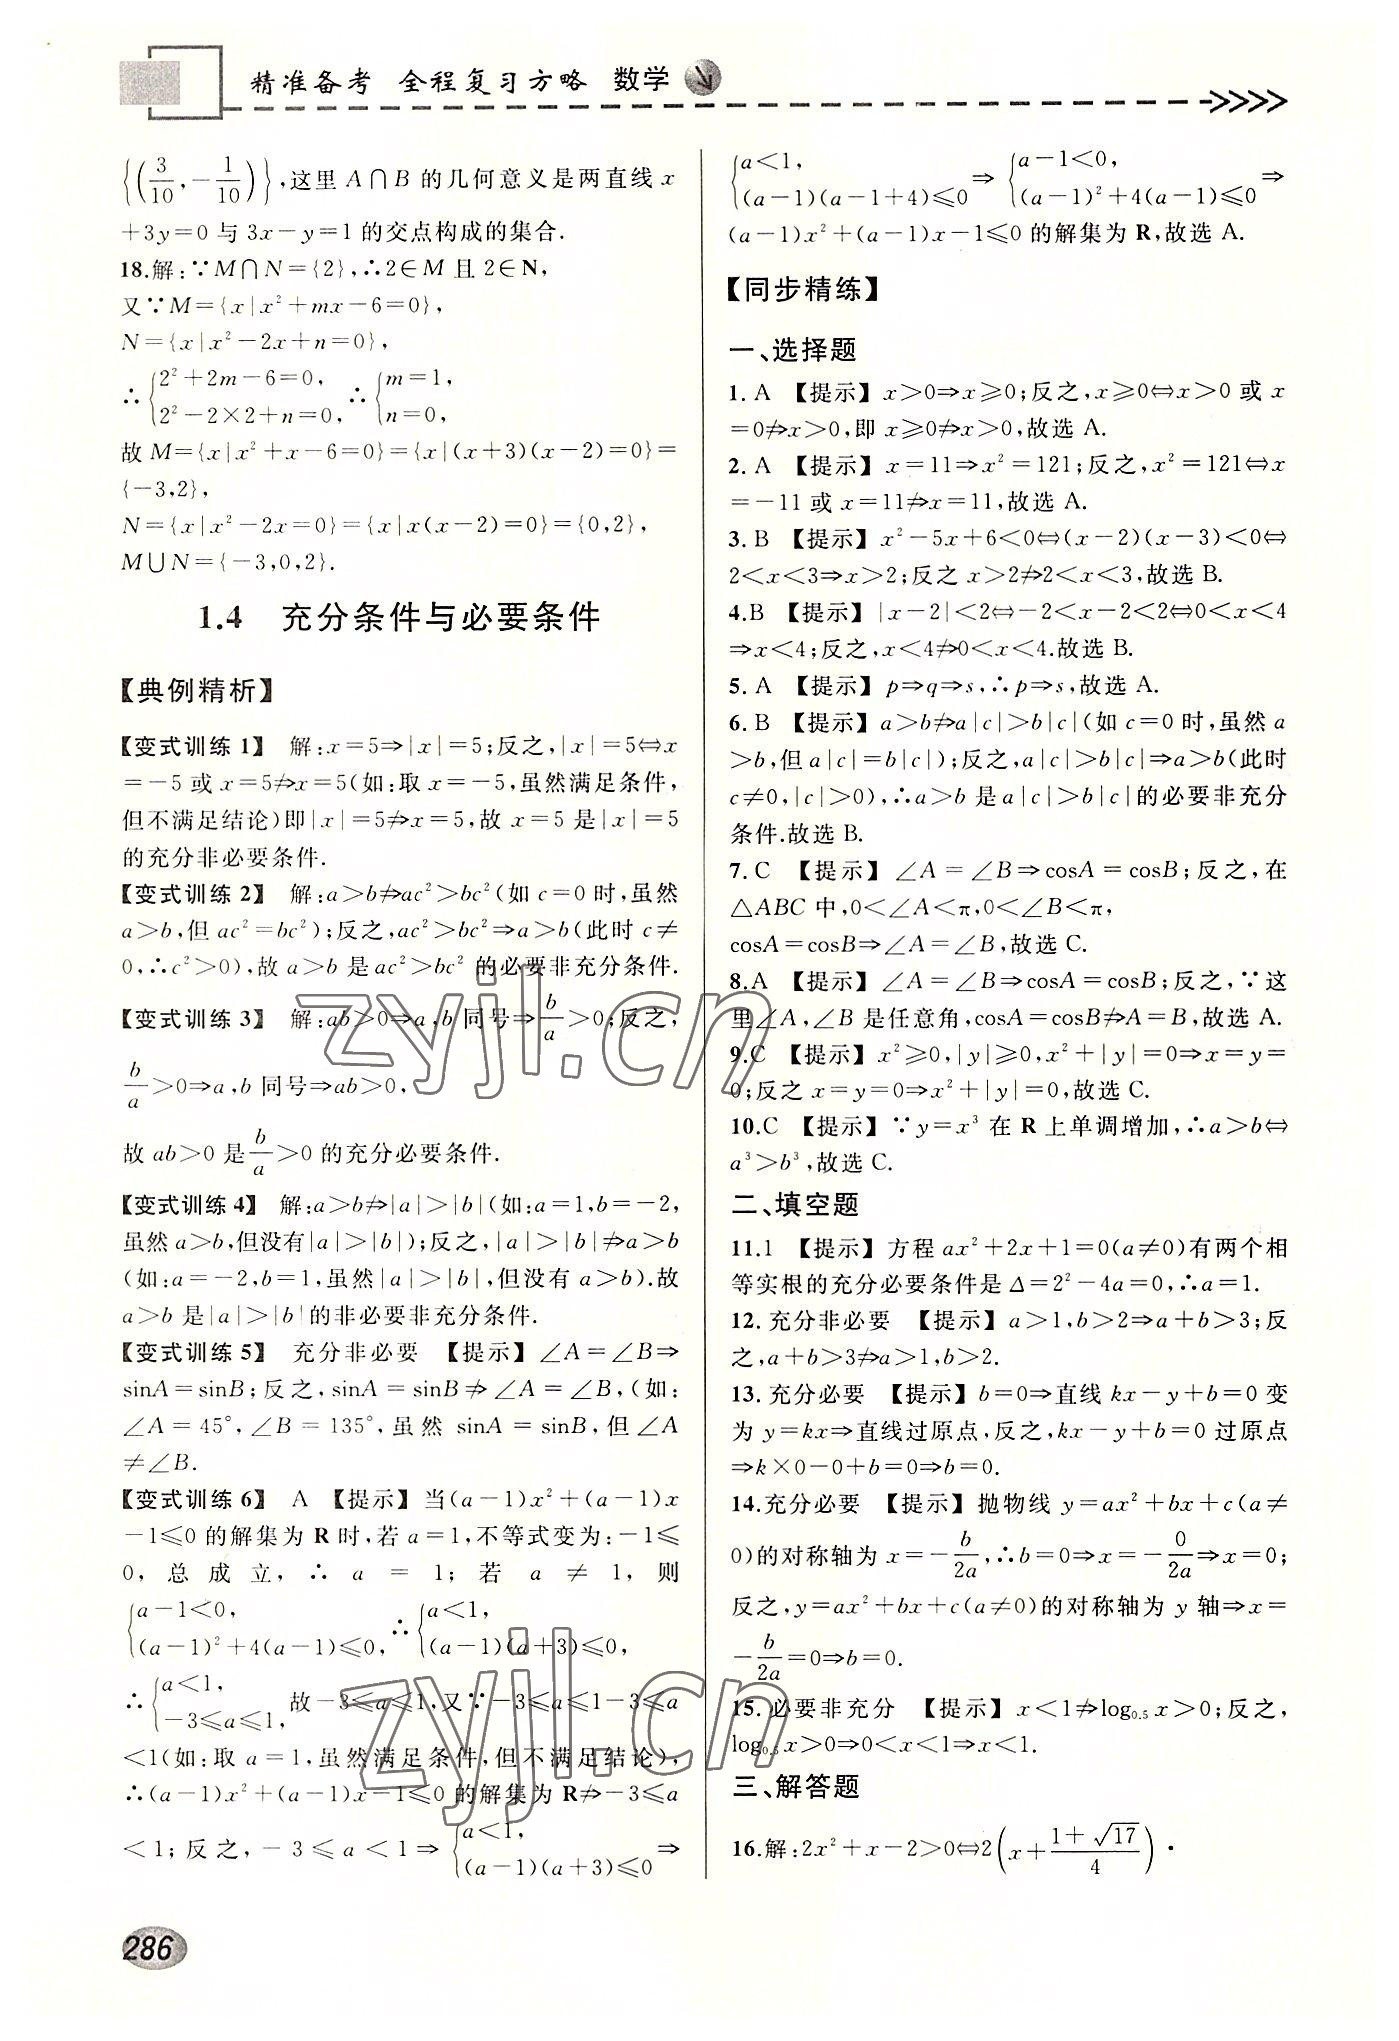 精准备考 全程复习方略 数学
{(3/10,-1/10)},这里 A∩B 的几何意义是两直线 x
+3y=0 与 3x-y=1 的交点构成的集合.
18.解:∵M∩N={2},∴2∈M 且 2∈N,
又∵M={x|x²+mx-6=0},
N={x|x²-2x+n=0},
∴{2²+2m-6=0, ∴{m=1,
2²-2×2+n=0, n=0,
故 M={x|x²+x-6=0}={x|(x+3)(x-2)=0}=
{-3,2},
N={x|x²-2x=0}={x|x(x-2)=0}={0,2},
M∪N={-3,0,2}.
1.4 充分条件与必要条件
【典例精析】
【变式训练1】 解:x=5⇒|x|=5;反之,|x|=5⇔x
=-5 或 x=5⇏x=5(如:取 x=-5,虽然满足条件,
但不满足结论)即|x|=5⇏x=5,故 x=5 是|x|=5
的充分非必要条件.
【变式训练2】 解:a>b⇏ac²>bc²(如 c=0 时,虽然
a>b,但 ac²=bc²);反之,ac²>bc²⇒a>b(此时 c≠
0,∴c²>0),故 a>b 是ac²>bc² 的必要非充分条件.
【变式训练3】 解:ab>0⇒a,b 同号⇒b/a>0;反之,
b/a>0⇒a,b 同号⇒ab>0,
故 ab>0 是b/a>0 的充分必要条件.
【变式训练4】 解:a>b⇏|a|>|b|(如:a=1,b=-2,
虽然 a>b,但没有|a|>|b|);反之,|a|>|b|⇏a>b
(如:a=-2,b=1,虽然|a|>|b|,但没有 a>b).故
a>b 是|a|>|b|的非必要非充分条件.
【变式训练5】 充分非必要 【提示】∠A=∠B⇒
sinA=sinB;反之,sinA=sinB⇏∠A=∠B,(如:
∠A=45°,∠B=135°,虽然 sinA=sinB,但∠A
≠∠B.
【变式训练6】 A 【提示】当(a-1)x²+(a-1)x
-1≤0 的解集为 R 时,若 a=1,不等式变为:-1≤
0,总成立,∴a=1;若 a≠1,则
{a-1<0, ∴{a<1,
(a-1)²+4(a-1)≤0, (a-1)(a+3)≤0,
∴{a<1, 故-3≤a≤1,又∵-3≤a≤1-3≤a
-3≤a≤1,
<1(如:取 a=1,虽然满足条件,但不满足结论),
∴(a-1)x²+(a-1)x-1≤0 的解集为 R⇏-3≤a
<1;反之,-3≤a<1⇒{a<1, ⇒
(a-1)(a+3)≤0
{a<1, ⇒{a-1<0, ⇒
(a-1)(a-1+4)≤0 (a-1)²+4(a-1)≤0
(a-1)x²+(a-1)x-1≤0 的解集为 R,故选 A.
【同步精练】
一、选择题
1. A 【提示】x>0⇒x≥0;反之,x≥0⇔x>0 或 x
=0⇏x>0,即 x≥0⇏x>0,故选 A.
2. A 【提示】x=11⇒x²=121;反之,x²=121⇔x
=-11 或 x=11⇏x=11,故选 A.
3. B 【提示】x²-5x+6<0⇔(x-2)(x-3)<0⇔
2<x<3⇒x>2;反之 x>2⇏2<x<3,故选 B.
4.B 【提示】|x-2|<2⇔-2<x-2<2⇔0<x<4
⇒x<4;反之,x<4⇏0<x<4.故选 B.
5. A 【提示】p⇒q⇒s,∴p⇒s,故选 A.
6. B 【提示】a>b⇏a|c|>b|c|(如 c=0 时,虽然 a
>b,但 a|c|=b|c|);反之,a|c|>b|c|⇒a>b(此时
c≠0,|c|>0),∴a>b 是 a|c|>b|c|的必要非充分
条件.故选 B.
7. C 【提示】∠A=∠B⇒cosA=cosB;反之,在
△ABC 中,0<∠A<π,0<∠B<π,
cosA=cosB⇒∠A=∠B,故选 C.
8.A 【提示】∠A=∠B⇒cosA=cosB;反之,∵这
里∠A,∠B 是任意角,cosA=cosB⇏A=B,故选 A.
9.C 【提示】x²≥0,|y|≥0,x²+|y|=0⇒x=y=
0;反之 x=y=0⇒x²+|y|=0,故选 C.
10.C 【提示】∵y=x³ 在 R 上单调增加,∴a>b⇔
a³>b³,故选 C.
二、填空题
11.1 【提示】方程 ax²+2x+1=0(a≠0)有两个相
等实根的充分必要条件是 Δ=2²-4a=0,∴a=1.
12. 充分非必要 【提示】a>1,b>2⇒a+b>3;反
之,a+b>3⇏a>1,b>2.
13. 充分必要 【提示】b=0⇒直线 kx-y+b=0 变
为 y=kx⇒直线过原点,反之,kx-y+b=0 过原点
⇒k×0-0+b=0⇒b=0.
14.充分必要 【提示】抛物线 y=ax²+bx+c(a≠
0)的对称轴为 x=-b/2a,∴b=0⇒x=-0/2a⇒x=0;
反之,y=ax²+bx+c(a≠0)的对称轴为 y 轴⇒x=
-b/2a=0⇒b=0.
15. 必要非充分 【提示】x<1⇏log₀.₅x>0;反之,
log₀.₅x>0⇒0<x<1⇒x<1.
三、解答题
16.解:2x²+x-2>0⇔2(x+(1+√17)/4)·
286
zyjl.cn
zyjl.cn